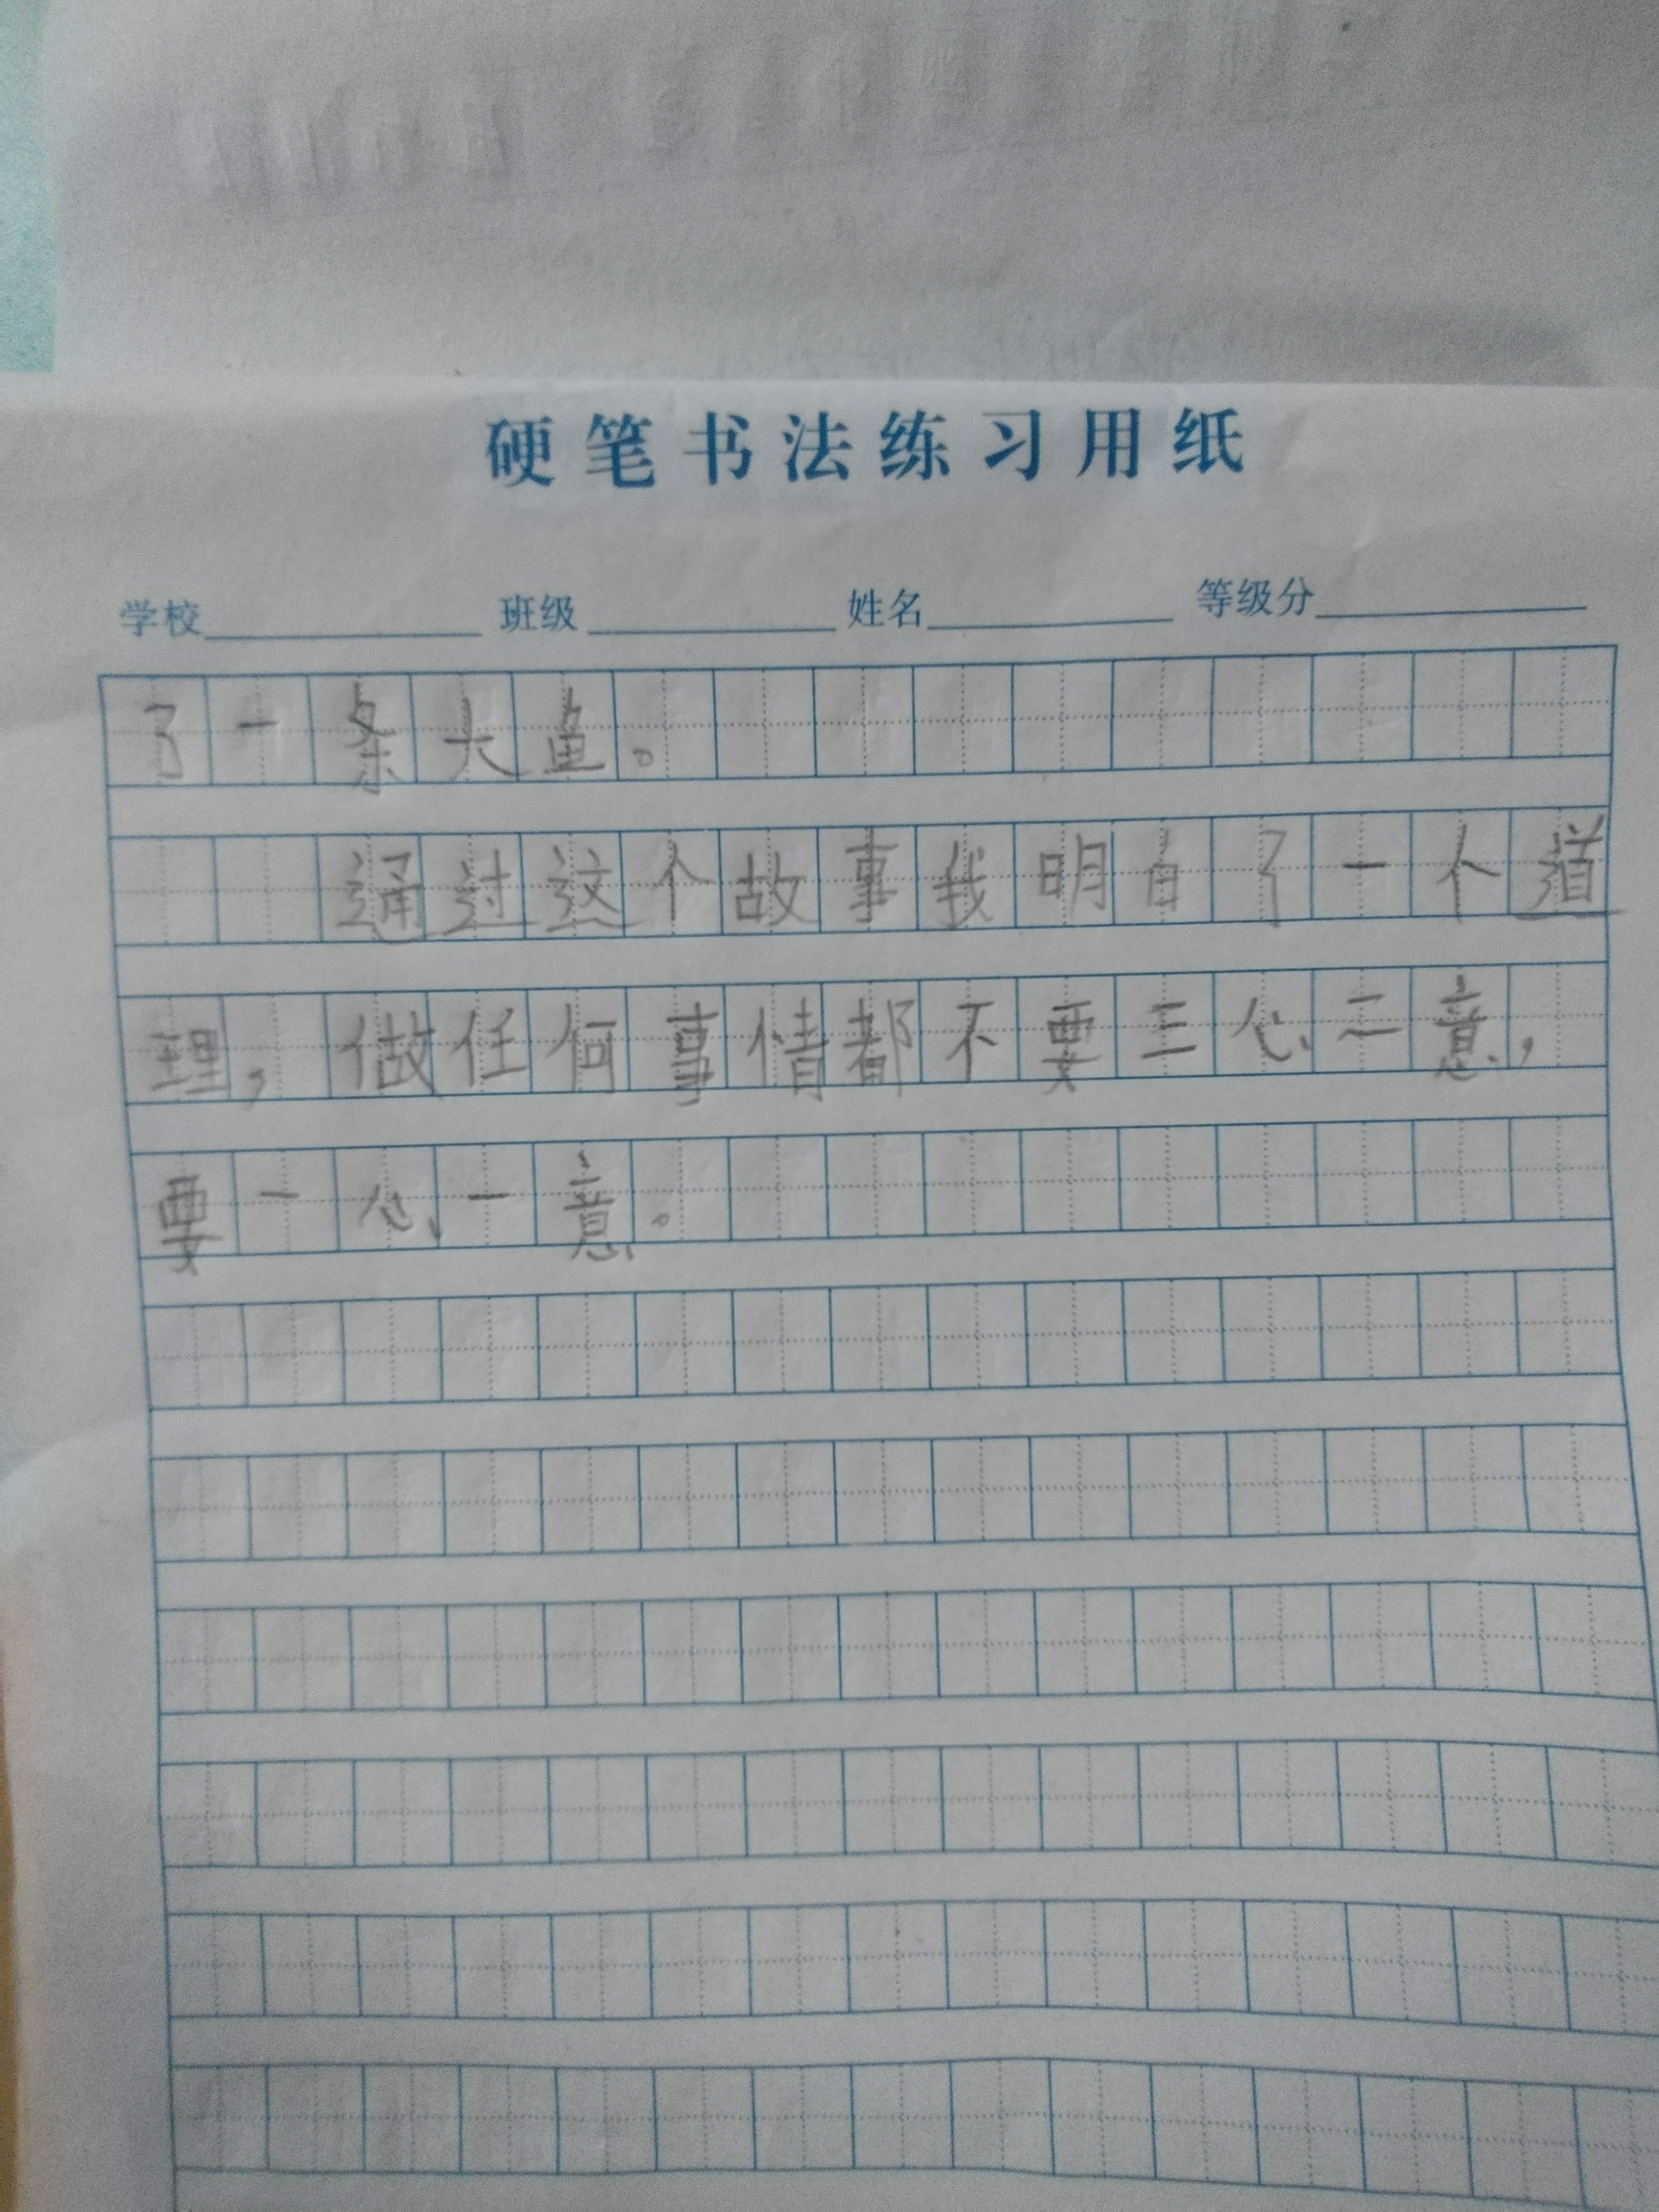 硬笔书法练习用纸
学校 班级 姓名 等级分
了一条大鱼。
通过这个故事我明白了一个道
理,做任何事情都不要三心二意,
要一心一意。